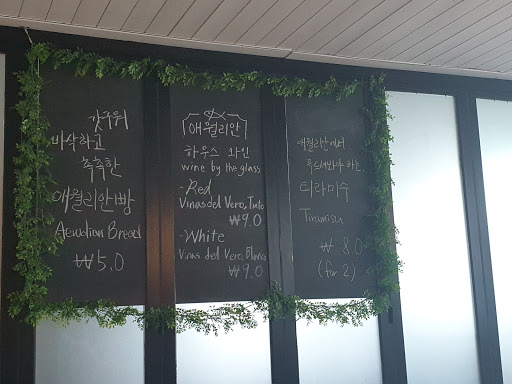 갓구워
바삭하고
촉촉한
애월리안빵
Aewolian Bread
₩5.0
애월리안
하우스 와인
wine by the glass
·Red
Vinas del Vero, Tinto
₩9.0
·White
Vinas del Vero, Blanco
₩9.0
애월리안에서
꼭드셔봐야 하는,
티라미수
Tiramisu
₩ 8.0
(for 2)